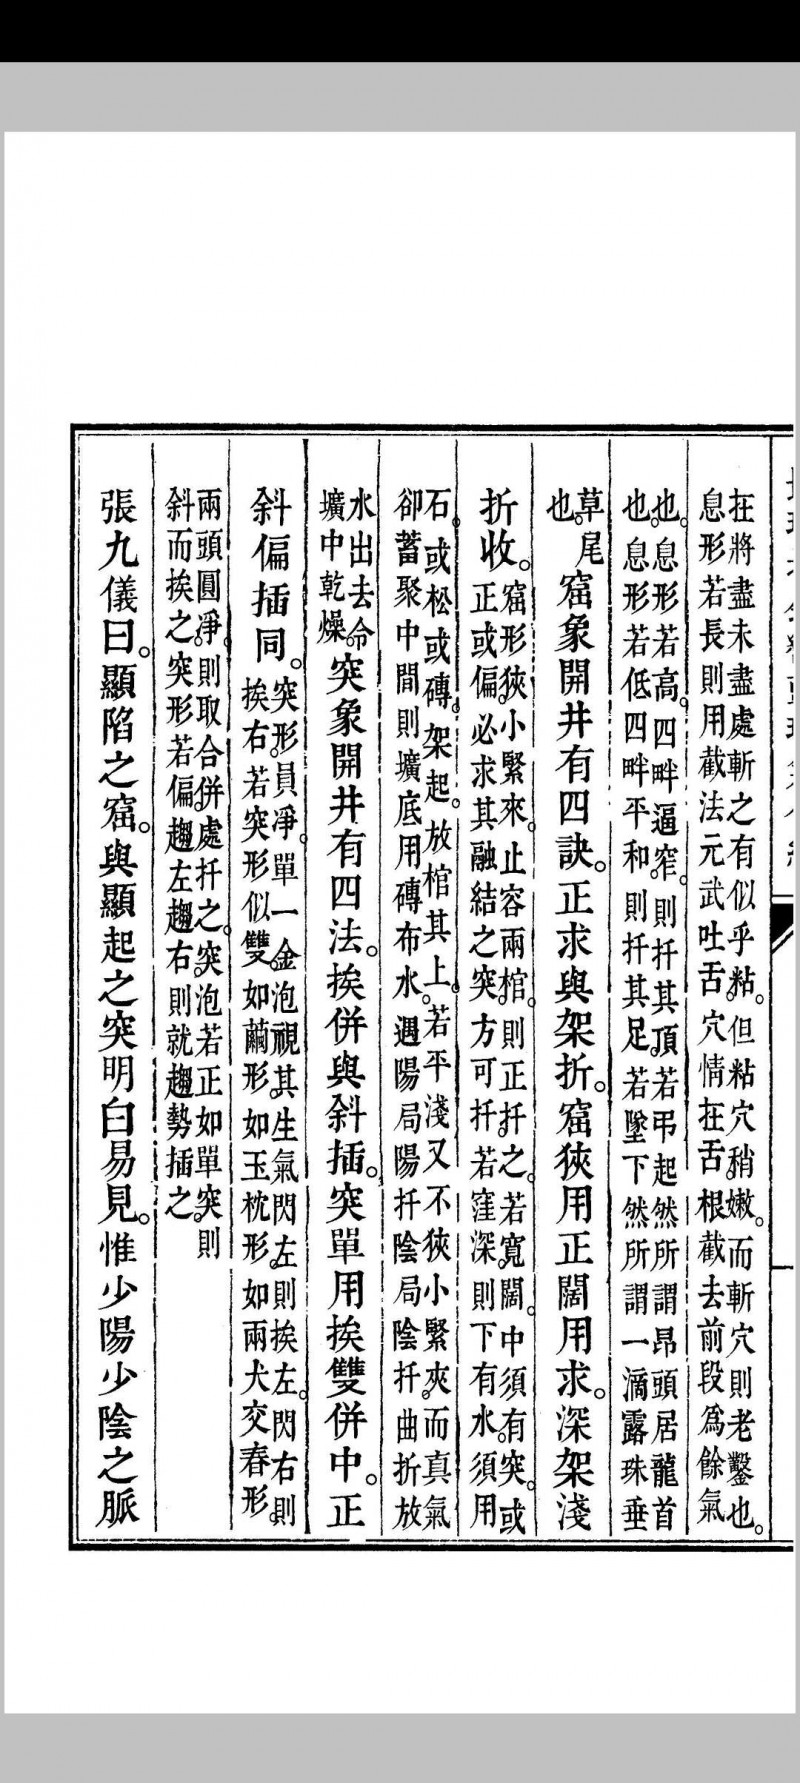 在將盡未盡處斬之有似乎粘。但粘穴稍嫩。而斬穴則老鑿也。
息形若長則用截法元武吐舌。穴情在舌。根截去前段爲餘氣
也。息形若高。四畔逼窄。則扦其頂。若弔起然所謂昂頭居龍首
也。息形若低四畔平和則扦其足。若墜下然所謂一滴露珠垂
草尾
也。
窟象開井有四訣。正求與架折。窟狹用正闊用求。深架淺
折收。
窟形狹小緊來。止容兩棺。則正扦之。若寬闊。中須有突。或
正或偏。必求其融結之突。方可扦。若窪深。則下有水。須用
石。或松或磚。架起。放棺其上。若平淺又不狹小緊夾。而真氣
卻蓄聚中間則壙底用磚布水。遇陽局陽扦陰局陰扦。曲折放
水出去。令
壙中乾燥。
突象開井有四法。挨併與斜插。突單用挨雙併中。正
斜偏插同。
突形員淨。單一金泡視其生氣閃左。則挨左。閃右則
挨右。若突形似雙。如繭形。如玉枕形。如兩犬交春形。
兩頭圓淨。則取合併處扦之。突泡若正如單突則
斜而挨之。突形若偏。趨左趨右。則就趨勢插之。
張九儀曰。顯陷之窟。與顯起之突明白易見。惟少陽少陰之脈